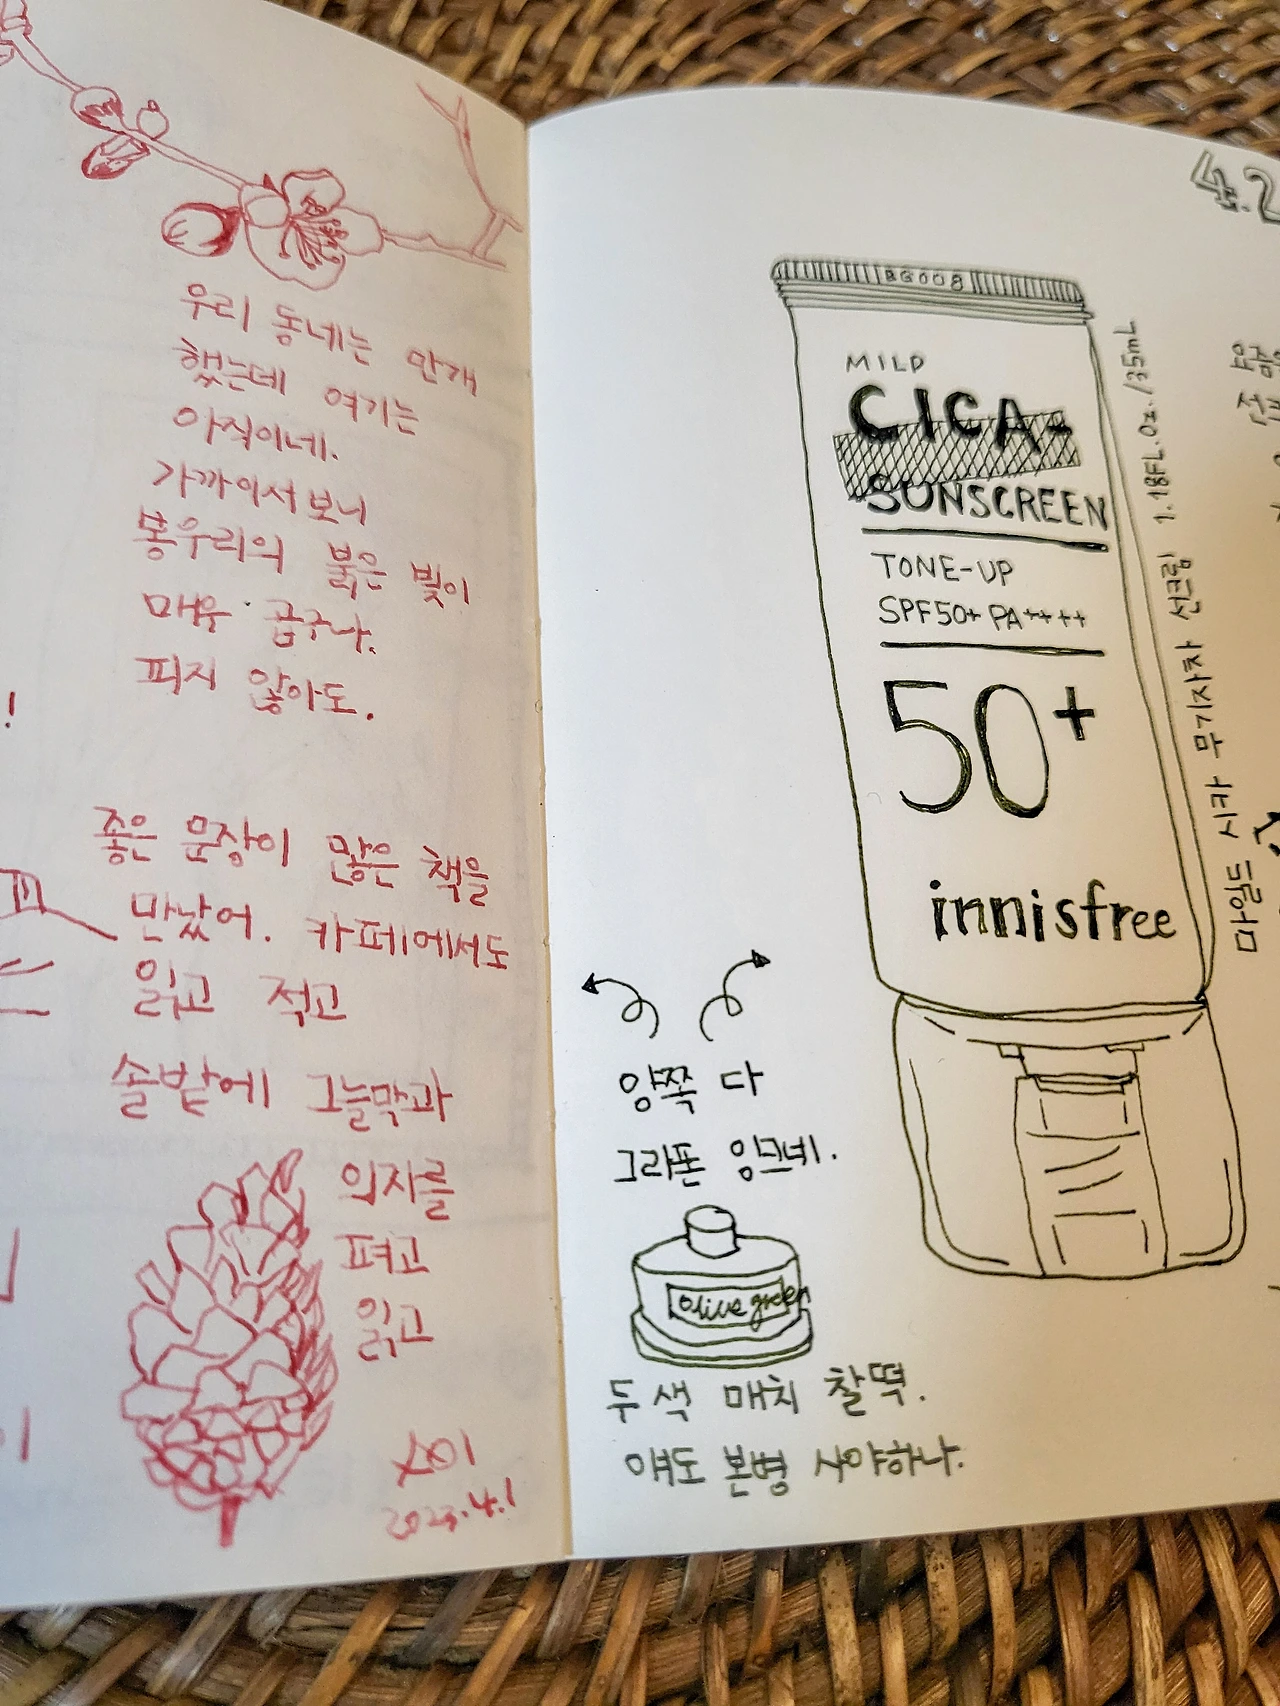 우리 동네는 만개
했는데 여기는
아직이네.
가까이서 보니
봉우리의 붉은 빛이
매우 곱구나.
피지 않아도.
좋은 문장이 많은 책을
만났어. 카페에서도
읽고 적고
솔밭에 그늘막과
의자를
펴고
읽고
2023.4.1
!
4.2
BG008
MILD
CICA-
SUNSCREEN
TONE-UP
SPF50+ PA++++
50+
innisfree
마일드 시카 무기자차 선크림 1.18FL.Oz./35mL
양쪽 다
그라폰 잉크네.
Olive green
두 색 매치 찰떡.
얘도 본병 사야하나.